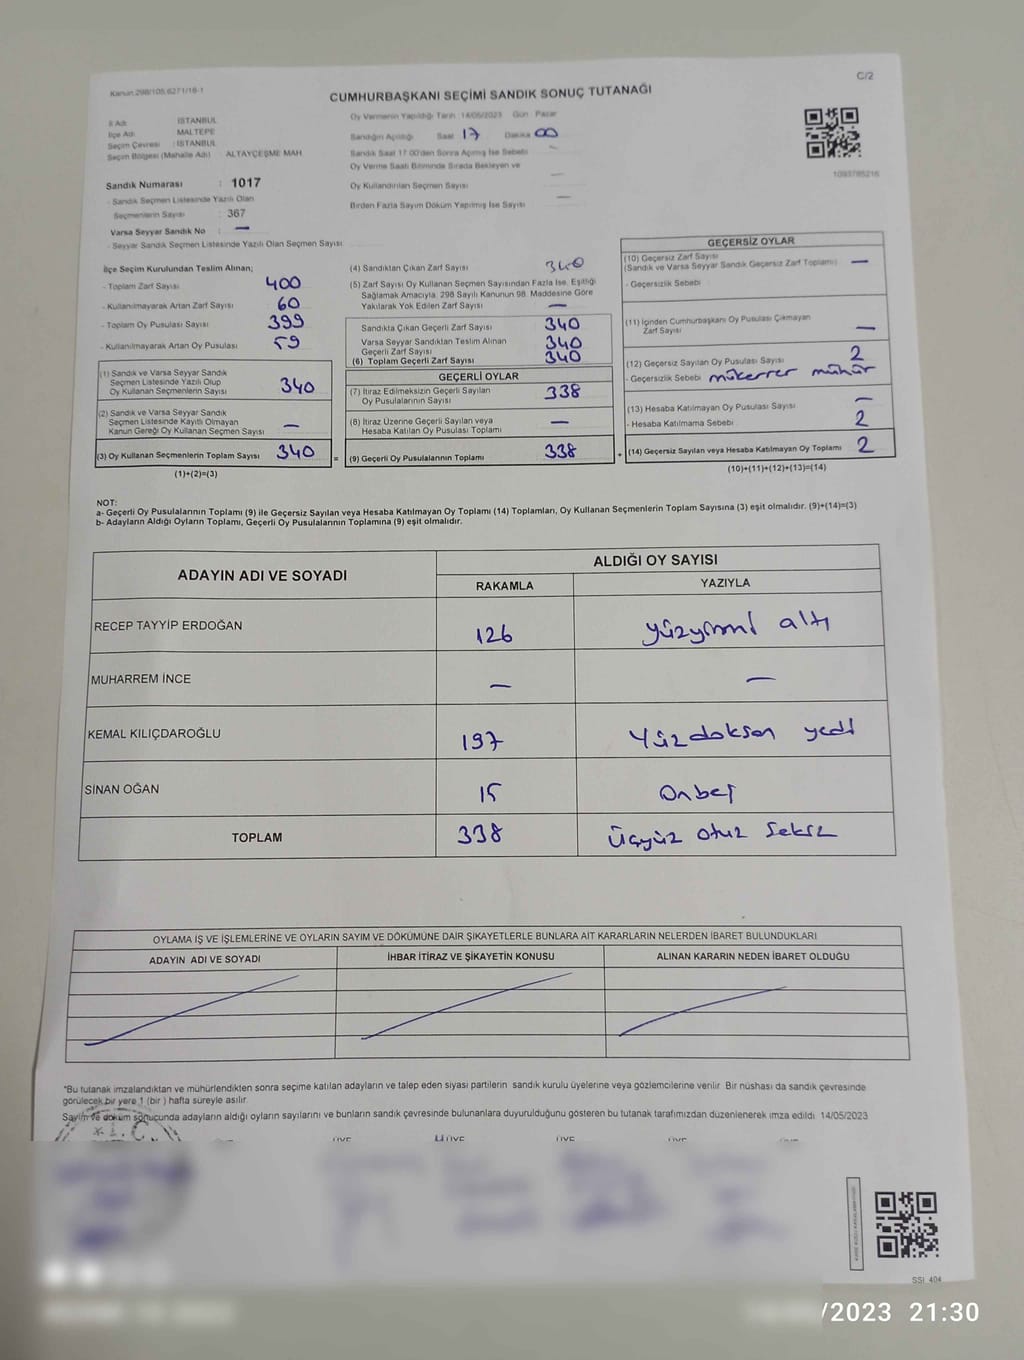 C/2
Kanun 298/105,6271/18-1
CUMHURBAŞKANI SEÇİMİ SANDIK SONUÇ TUTANAĞI
İl Adı : İSTANBUL
İlçe Adı : MALTEPE
Seçim Çevresi : İSTANBUL
Seçim Bölgesi (Mahalle Adı) : ALTAYÇEŞME MAH
Sandık Numarası : 1017
- Sandık Seçmen Listesinde Yazılı Olan
Seçmenlerin Sayısı : 367
Varsa Seyyar Sandık No : —
- Seyyar Sandık Seçmen Listesinde Yazılı Olan Seçmen Sayısı
Oy Vermenin Yapıldığı Tarih :14/05/2023 Gün : Pazar
Sandığın Açıldığı Saat 17 Dakika 00
Sandık Saat 17:00'den Sonra Açılmış İse Sebebi
Oy Verme Saati Bitiminde Sırada Bekleyen ve
Oy Kullandırılan Seçmen Sayısı —
Birden Fazla Sayım Döküm Yapılmış İse Sayısı —
1093785216
İlçe Seçim Kurulundan Teslim Alınan;
- Toplam Zarf Sayısı : 400
- Kullanılmayarak Artan Zarf Sayısı : 60
- Toplam Oy Pusulası Sayısı : 399
- Kullanılmayarak Artan Oy Pusulası : 59
(1) Sandık ve Varsa Seyyar Sandık
Seçmen Listesinde Yazılı Olup
Oy Kullanan Seçmenlerin Sayısı 340
(2) Sandık ve Varsa Seyyar Sandık
Seçmen Listesinde Kayıtlı Olmayan
Kanun Gereği Oy Kullanan Seçmen Sayısı —
(3) Oy Kullanan Seçmenlerin Toplam Sayısı 340 =
(1)+(2)=(3)
(4) Sandıktan Çıkan Zarf Sayısı 340
(5) Zarf Sayısı Oy Kullanan Seçmen Sayısından Fazla İse, Eşitliği
Sağlamak Amacıyla, 298 Sayılı Kanunun 98. Maddesine Göre
Yakılarak Yok Edilen Zarf Sayısı —
Sandıkta Çıkan Geçerli Zarf Sayısı 340
Varsa Seyyar Sandıktan Teslim Alınan
Geçerli Zarf Sayısı 340
(6) Toplam Geçerli Zarf Sayısı 340
GEÇERLİ OYLAR
(7) İtiraz Edilmeksizin Geçerli Sayılan
Oy Pusulalarının Sayısı 338
(8) İtiraz Üzerine Geçerli Sayılan veya
Hesaba Katılan Oy Pusulası Toplamı —
(9) Geçerli Oy Pusulalarının Toplamı 338 +
GEÇERSİZ OYLAR
(10) Geçersiz Zarf Sayısı
(Sandık ve Varsa Seyyar Sandık Geçersiz Zarf Toplamı) —
- Geçersizlik Sebebi
(11) İçinden Cumhurbaşkanı Oy Pusulası Çıkmayan
Zarf Sayısı —
(12) Geçersiz Sayılan Oy Pusulası Sayısı 2
- Geçersizlik Sebebi mükerrer mühür
(13) Hesaba Katılmayan Oy Pusulası Sayısı —
- Hesaba Katılmama Sebebi 2
(14) Geçersiz Sayılan veya Hesaba Katılmayan Oy Toplamı 2
(10)+(11)+(12)+(13)=(14)
NOT:
a- Geçerli Oy Pusulalarının Toplamı (9) ile Geçersiz Sayılan veya Hesaba Katılmayan Oy Toplamı (14) Toplamları, Oy Kullanan Seçmenlerin Toplam Sayısına (3) eşit olmalıdır. (9)+(14)=(3)
b- Adayların Aldığı Oyların Toplamı, Geçerli Oy Pusulalarının Toplamına (9) eşit olmalıdır.
ADAYIN ADI VE SOYADI ALDIĞI OY SAYISI
RAKAMLA YAZIYLA
RECEP TAYYİP ERDOĞAN 126 yüzyirmi altı
MUHARREM İNCE — —
KEMAL KILIÇDAROĞLU 197 Yüzdoksan yedi
SİNAN OĞAN 15 Onbeş
TOPLAM 338 Üçyüz otuz sekiz
OYLAMA İŞ VE İŞLEMLERİNE VE OYLARIN SAYIM VE DÖKÜMÜNE DAİR ŞİKAYETLERLE BUNLARA AİT KARARLARIN NELERDEN İBARET BULUNDUKLARI
ADAYIN ADI VE SOYADI İHBAR İTİRAZ VE ŞİKAYETİN KONUSU ALINAN KARARIN NEDEN İBARET OLDUĞU
*Bu tutanak imzalandıktan ve mühürlendikten sonra seçime katılan adayların ve talep eden siyasi partilerin sandık kurulu üyelerine veya gözlemcilerine verilir. Bir nüshası da sandık çevresinde
görülecek bir yere 1 (bir ) hafta süreyle asılır.
Sayım ve döküm sonucunda adayların aldığı oyların sayılarını ve bunların sandık çevresinde bulunanlara duyurulduğunu gösteren bu tutanak tarafımızdan düzenlenerek imza edildi. 14/05/2023
SSI_404
/2023 21:30